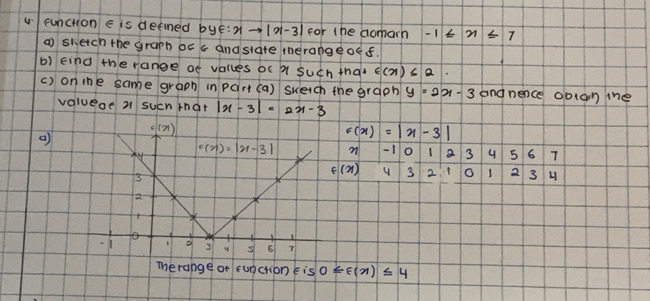 4. Function f is defined by f: x → |x-3| for the domain -1 ≤ x ≤ 7
a) sketch the graph of f and state the range of f.
b) Find the range of values of x such that f(x) ≤ 2.
c) on the same graph in part (a) sketch the graph y = 2x - 3 and hence obtain the
value of x such that |x - 3| = 2x - 3
a)
f(x)
f(x) = |x-3|
4
3
2
1
0
-1 1 2 3 4 5 6 7
f(x) = |x - 3|
x -1 0 1 2 3 4 5 6 7
f(x) 4 3 2 1 0 1 2 3 4
The range of function f is 0 ≤ f(x) ≤ 4